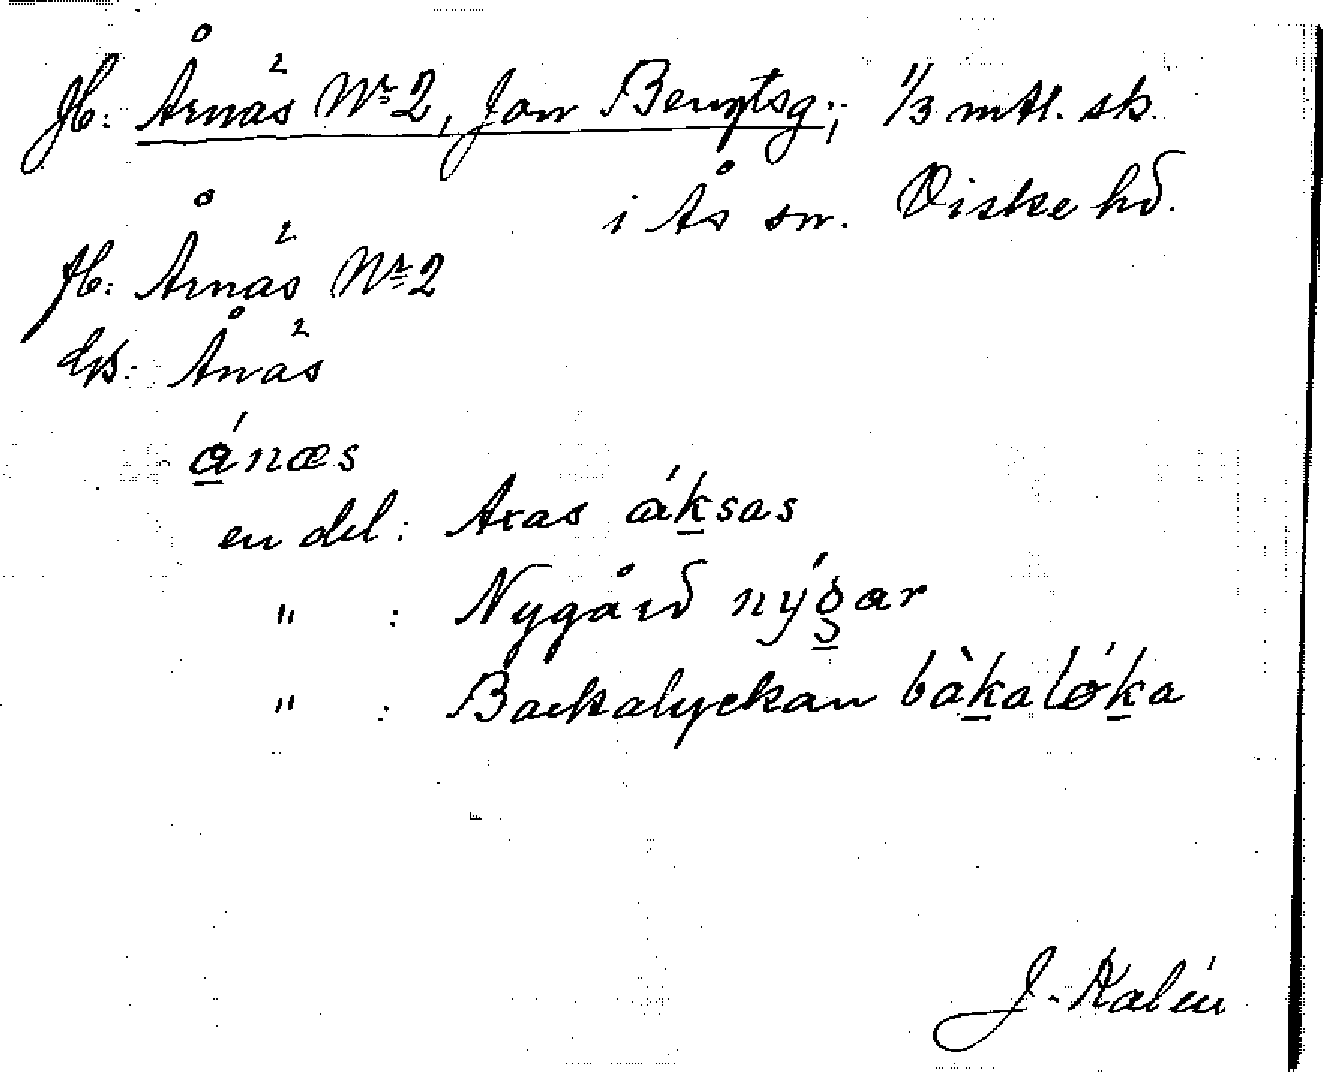 Jb: Årnäs Nr 2, Jon Bengtsg.; 1/3 mtl. sk.
i Ås sn. Viske hd.
fb: Årnäs Nr 2
Ånäs
ánæs
en del: Axas áksas
" : Nygård nýgar
" : Backalyckan bàkaløka
J. Kalén